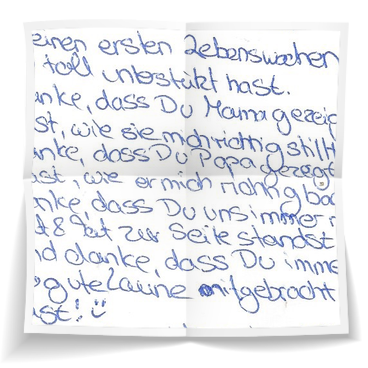 einen ersten Lebenswochen
toll unterstützt hast.
anke, dass Du Mama gezeig
st, wie sie mich richtig stillt
anke, dass Du Papa gezeigt
ast, wie er mich richtig bad
nke, dass Du uns immer
t & Tat zur Seite standst
nd danke, dass Du imme
gute Laune mitgebracht
ast! :)